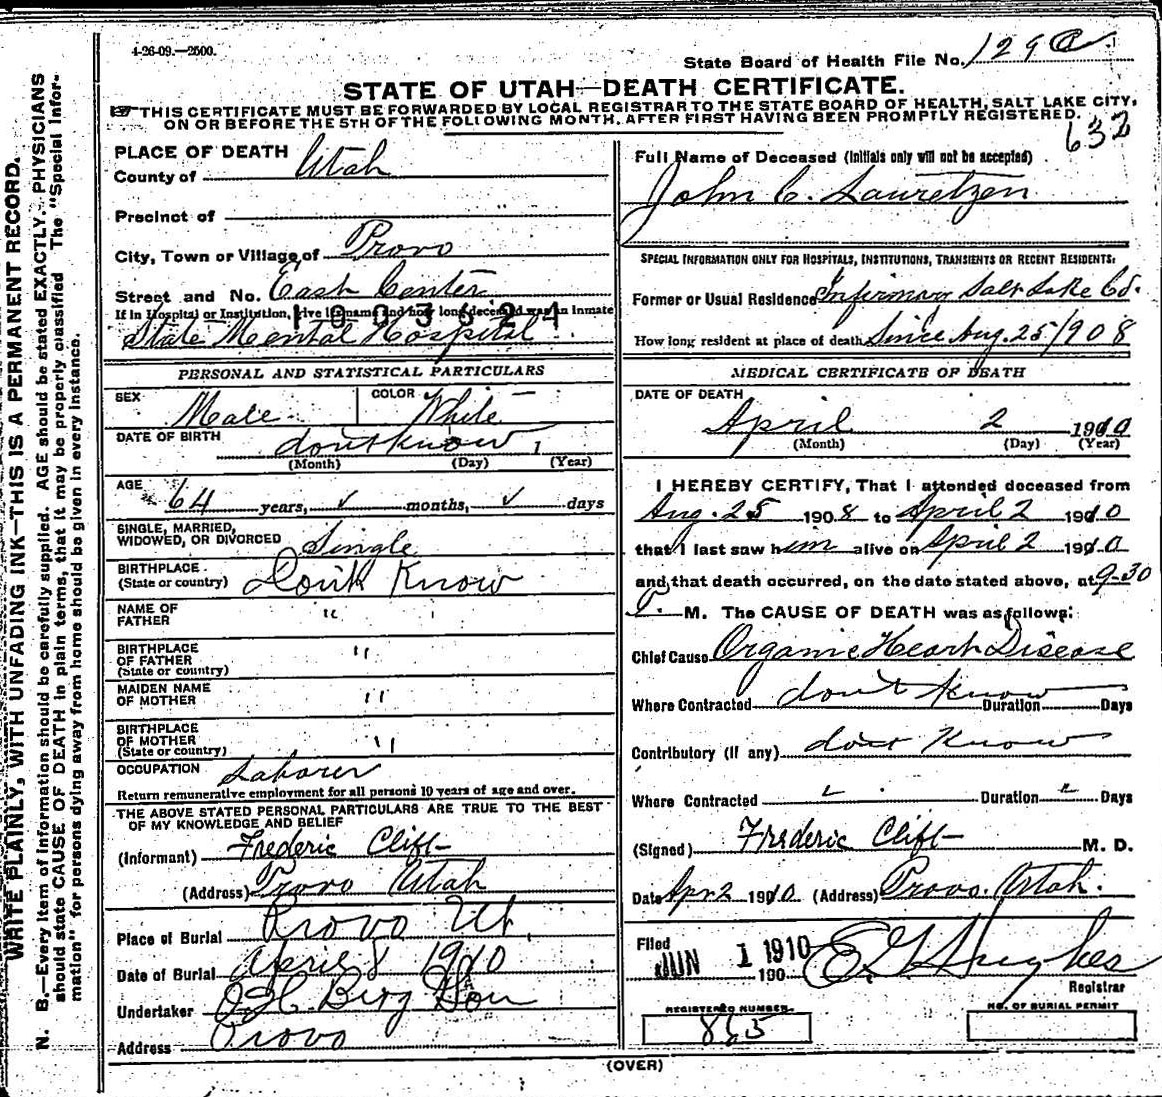 4-26-09.—2500.
State Board of Health File No. 129
STATE OF UTAH—DEATH CERTIFICATE.
THIS CERTIFICATE MUST BE FORWARDED BY LOCAL REGISTRAR TO THE STATE BOARD OF HEALTH, SALT LAKE CITY,
ON OR BEFORE THE 5TH OF THE FOLLOWING MONTH, AFTER FIRST HAVING BEEN PROMPTLY REGISTERED.
632
WRITE PLAINLY, WITH UNFADING INK—THIS IS A PERMANENT RECORD.
N. B.—Every item of information should be carefully supplied. AGE should be stated EXACTLY. PHYSICIANS
should state CAUSE OF DEATH in plain terms, that it may be properly classified The "Special Infor-
mation" for persons dying away from home should be given in every instance.
PLACE OF DEATH
County of Utah
Precinct of
City, Town or Village of Provo
Street and No. East Center
If in Hospital or Institution, give its name and how long deceased was an Inmate
1003624
State Mental Hospital
PERSONAL AND STATISTICAL PARTICULARS
SEX Male COLOR White
DATE OF BIRTH dont know 1
(Month) (Day) (Year)
AGE 64 years, ✓ months, ✓ days
SINGLE, MARRIED,
WIDOWED, OR DIVORCED Single
BIRTHPLACE
(State or country) Dont Know
NAME OF
FATHER "
BIRTHPLACE
OF FATHER "
(State or country)
MAIDEN NAME
OF MOTHER "
BIRTHPLACE
OF MOTHER "
(State or country)
OCCUPATION Laborer
Return remunerative employment for all persons 10 years of age and over.
THE ABOVE STATED PERSONAL PARTICULARS ARE TRUE TO THE BEST
OF MY KNOWLEDGE AND BELIEF
(Informant) Frederic Clift
(Address) Provo Utah
Place of Burial Provo Ut.
Date of Burial April 8 1910
Undertaker Berg & Son
Address Provo
Full Name of Deceased (Initials only will not be accepted)
John C. Lauretzen
SPECIAL INFORMATION ONLY FOR HOSPITALS, INSTITUTIONS, TRANSIENTS OR RECENT RESIDENTS:
Former or Usual Residence Infirmary Salt Lake Co.
How long resident at place of death Since Aug. 25/1908
MEDICAL CERTIFICATE OF DEATH
DATE OF DEATH
April 2 1910
(Month) (Day) (Year)
I HEREBY CERTIFY, That I attended deceased from
Aug. 25 1908 to April 2 1910
that I last saw him alive on April 2 1910
and that death occurred, on the date stated above, at 9-30
P. M. The CAUSE OF DEATH was as follows:
Chief Cause Organic Heart Disease
Where Contracted dont know Duration Days
Contributory (if any) dont Know
Where Contracted " Duration " Days
(Signed) Frederic Clift M. D.
Date Apr 2 1910 (Address) Provo. Utah.
Filed JUN 1 1910 190 Hughes
Registrar
REGISTERED NUMBER
865
NO. OF BURIAL PERMIT
(OVER)